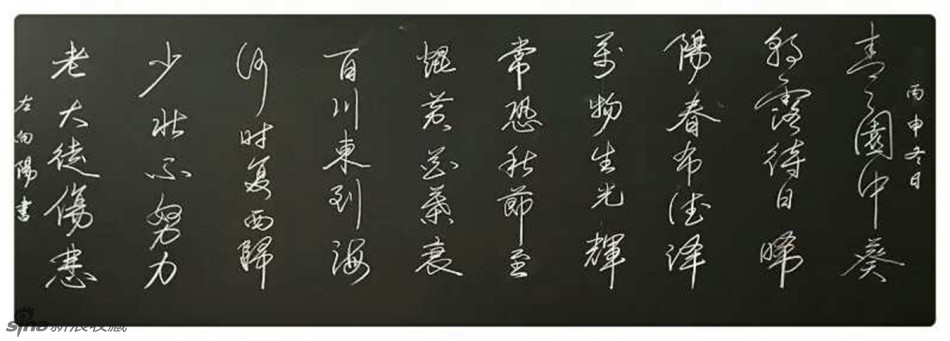 丙申冬日
青〻園中葵
朝露待日晞
陽春布德泽
萬物生光輝
常恐秋節至
焜黄花葉衰
百川東到海
何时复西歸
少壮不努力
老大徒傷悲
左向陽書
sina新浪收藏